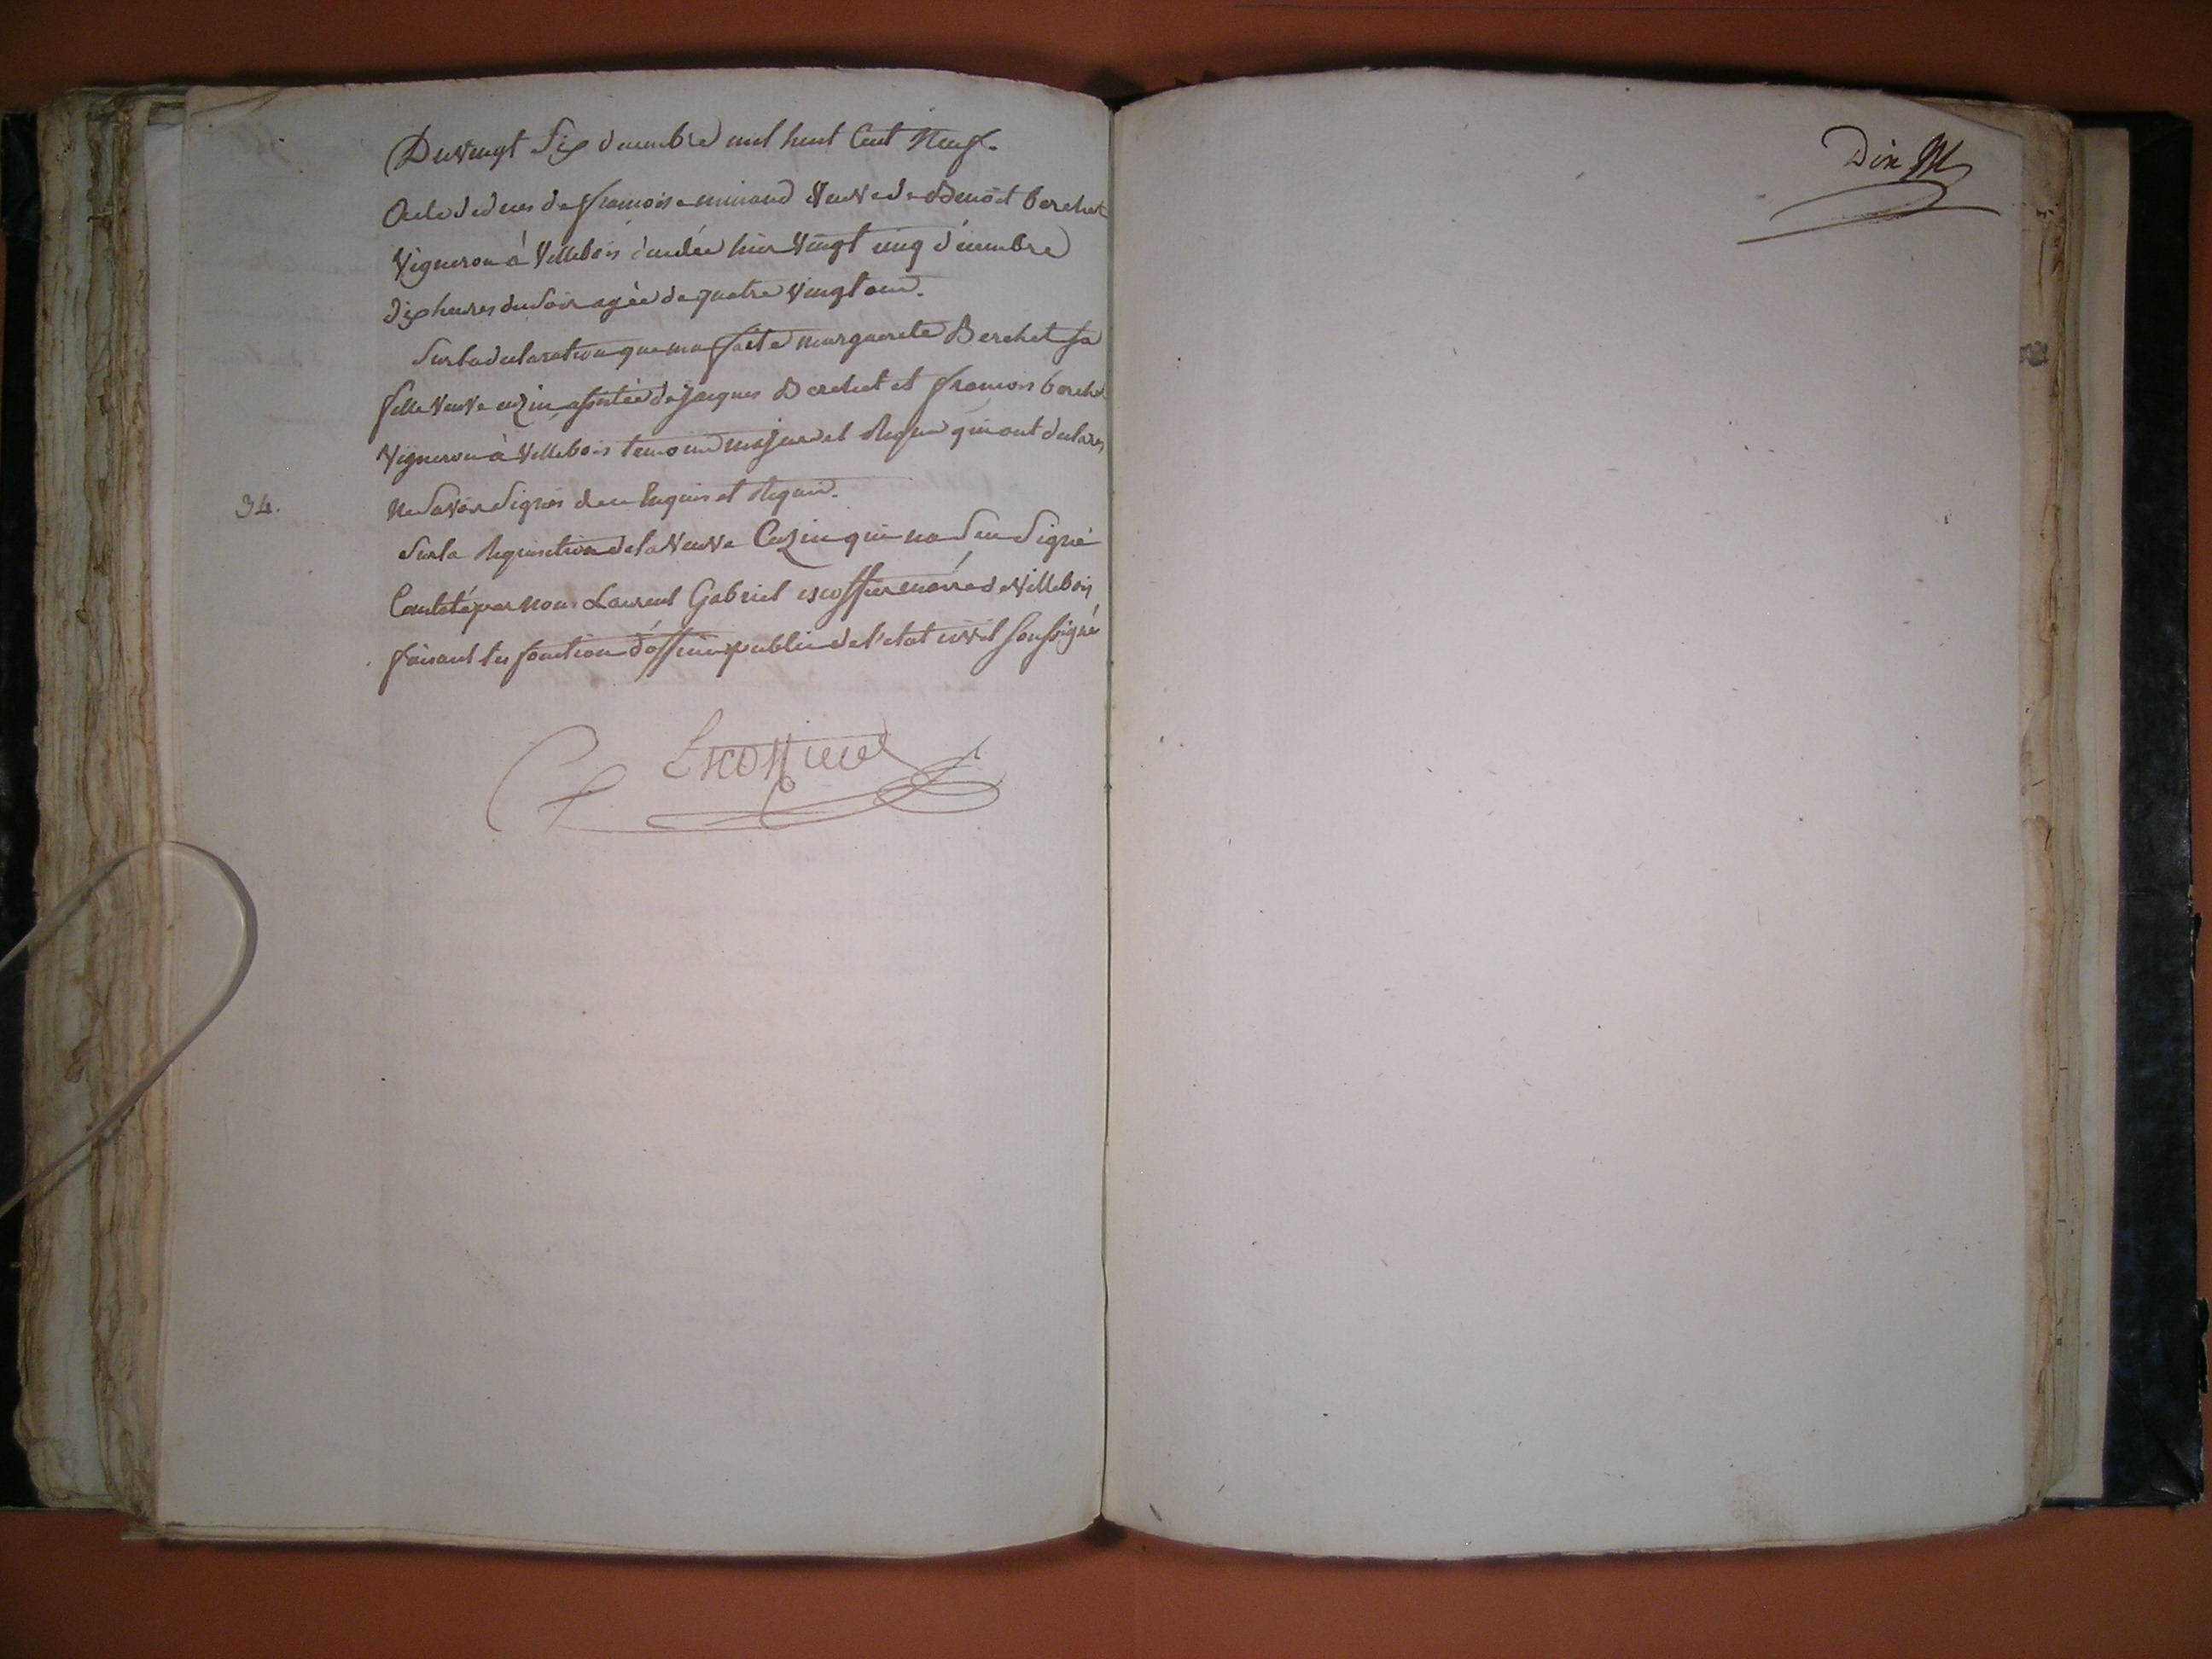 Du Vingt Six decembre mil huit Cent Neuf.
Acte de deces de francoise miraud Veuve de Benoit Berchet
Vigneron à Villebois decedée hier Vingt cinq décembre
dix heures du Soir agée de quatre Vingt ans.
Sur la declaration que ma faite marguerite Berchet sa
fille Veuve cuzin assistée de jacques Berchet et francois berchet
Vigneron à Villebois temoins majeurs et Requis qui ont declarés
ne Savoir Signer de ce Enquis et Requis.
34.
Sur la Requisition de la Veuve Cuzin qui na Seu Signé
Constaté par nous Laurent Gabriel escoffier maire de Villebois
faisant les fonction d'officier public de l'etat civil soussigné
Escoffier
Dix